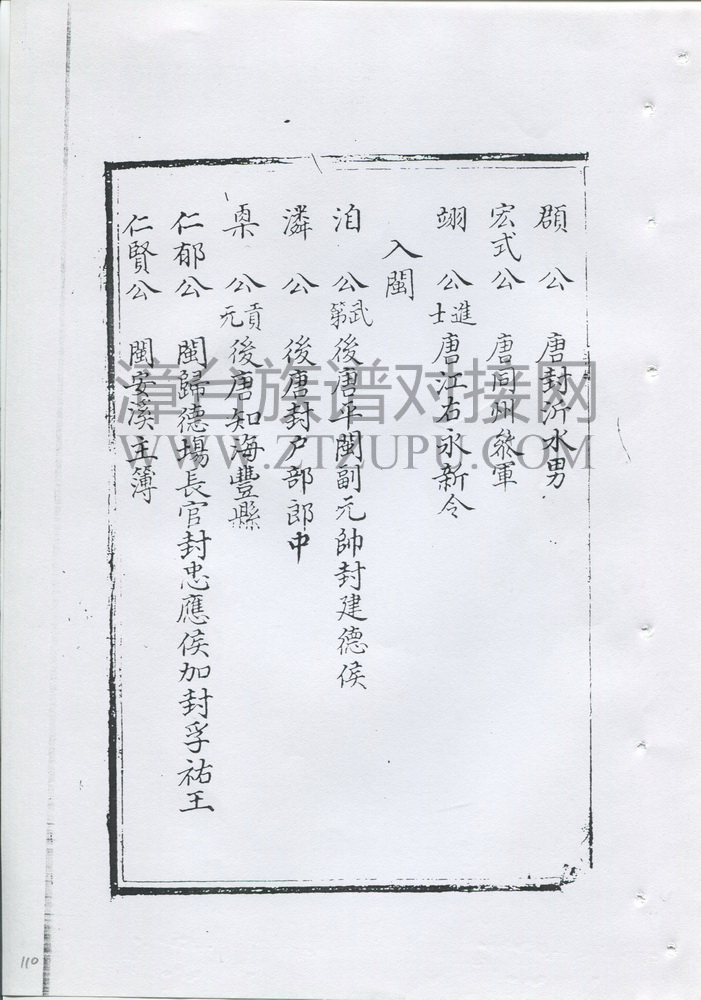 頵公 唐封沂水男
宏式公 唐同州叅軍
翊公 進士 唐江右永新令
入閩
洎公 武第 後唐平閩副元帥封建德侯
潾公 後唐封戶部郎中
㮚公 貢元 後唐知海豐縣
仁郁公 閩歸德場長官封忠應侯加封孚祐王
仁賢公 閩安溪主簿
漳台族谱对接网
WWW.ZTZUPU.COM
110